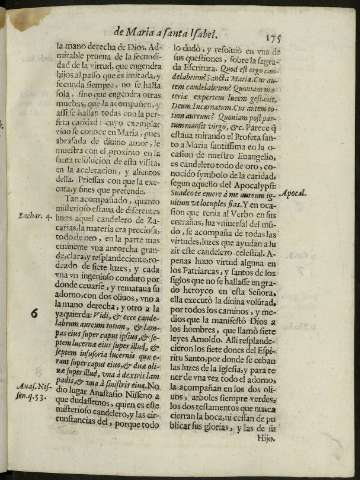 de Maria a santa Isabel.
175
la mano derecha de Dios. Ad-
mirable prueua de la secundi-
dad de la virtud, que engendra
hijos al passo que es imitada, y
fecunda siempre, no se halla
sola, sino que engendra otras
muchas, que la acompañen, y
assi se hallan todas con la per-
feta caridad: cuyo exemplar
viuo se conoce en Maria, pues
abrasada de diuino amor, le
muestra con el proximo en la
santa resolucion de esta visita
en la aceleracion, y alientos
della. Priessas con que la exe-
cuta, y fines que pretende.
Tan acompañado, quanto
misterioso estaua de diferentes
Zachar. 4.
luzes aquel candelero de Za-
carias, la materia era preciosa,
todo de oro, en la parte mas
eminente vna antorcha gran-
de, clara, y resplandeciente, ro-
deado de siete luzes, y cada
vna vn ingenioso conduto por
donde ceuarse, y rematava su
adorno, con dos oliuos, vno a
la mano derecha, y otro a la
6
yzquierda: Vidi, & ecce cande-
labrum aureum totum, & lam-
pas eius super caput ipsius, & se-
ptem lucernæ eius super illud, &
septem infusoria lucernis quæ e-
rant super caput eius, & duæ oli-
uæ super illud, vna à dextris lam-
padis, & vna à sinistris eius. No
Anas. Nis-
sen. q. 53.
dio lugar Anastasio Nisseno a
que dudassemos, quien es este
misterioso candelero, y las cir-
cunstancias del, porque todo
lo dudò, y resoluiò en vna de
sus questiones, sobre la sagra-
da Escritura. Quod est ergo can-
delabrum? sancta Maria. Cur au-
tem candelabrum? Quoniam ma-
teria expertem lucem gestauit,
Deum Incarnatum. Cur autem to-
tum aureum? Quoniam post par-
tum mansit virgo, &c. Parece q̃
estaua mirando el Profeta san-
to a Maria santissima en la o-
casion de nuestro Euangelio,
es candelero todo de oro, co-
nocido symbolo de la caridad,
segun aquello del Apocalypsi:
Suadeo te emere à me aurum ig-
Apocal.
nitum vt locuples fias. Y en oca-
sion que tenia al Verbo en sus
entrañas, luz vniuersal del mū-
do, se acompaña de todas las
virtudes, luzes que ayudan a lu-
zir este candelero celestial. A-
penas huuo virtud alguna en
los Patriarcas, y santos de los
siglos que no se hallasse en gra-
do heroyco en esta Señora,
ella executò la diuina volūtad,
por todos los caminos, y me-
dios que la manifestò Dios a
los hombres, que llamò siete
leyes Arnoldo. Alli resplande-
cieron los siete dones del Espi-
ritu Santo, por donde se ceban
las luzes de la Iglesia, y para te-
ner de vna vez todo el adorno,
la acompañan en los dos oli-
uos, arboles siempre verdes,
los dos testamentos que nunca
cierran la boca, ni cessan de pu-
blicar sus glorias, y las de su
Hijo.